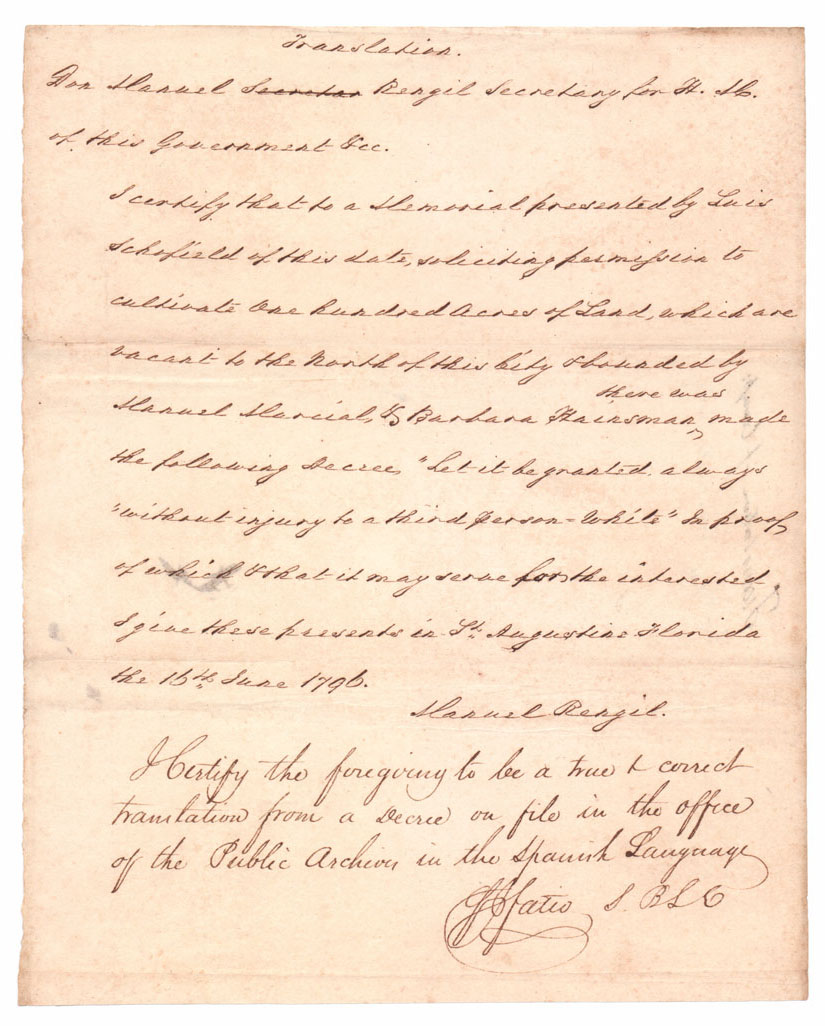 Translation.
Don Manuel Secretar Rengil Secretary for H. M.
of this Government &cc.
I certify that to a Memorial presented by Luis
Schofield of this date, soliciting permission to
cultivate One hundred Acres of Land, which are
vacant to the North of this City & bounded by
there was
Manuel Marcial, & Barbara Hainsman, made
the following Decree, "Let it be granted. always
"without injury to a third person - White" In proof
of which & that it may serve for the interested.
I give these presents in St. Augustine Florida
the 16th June 1796.
Manuel Rengil.
I Certify the foregoing to be a true & correct
translation from a Decree on file in the office
of the Public Archives in the Spanish Language
Fatio S. B L C